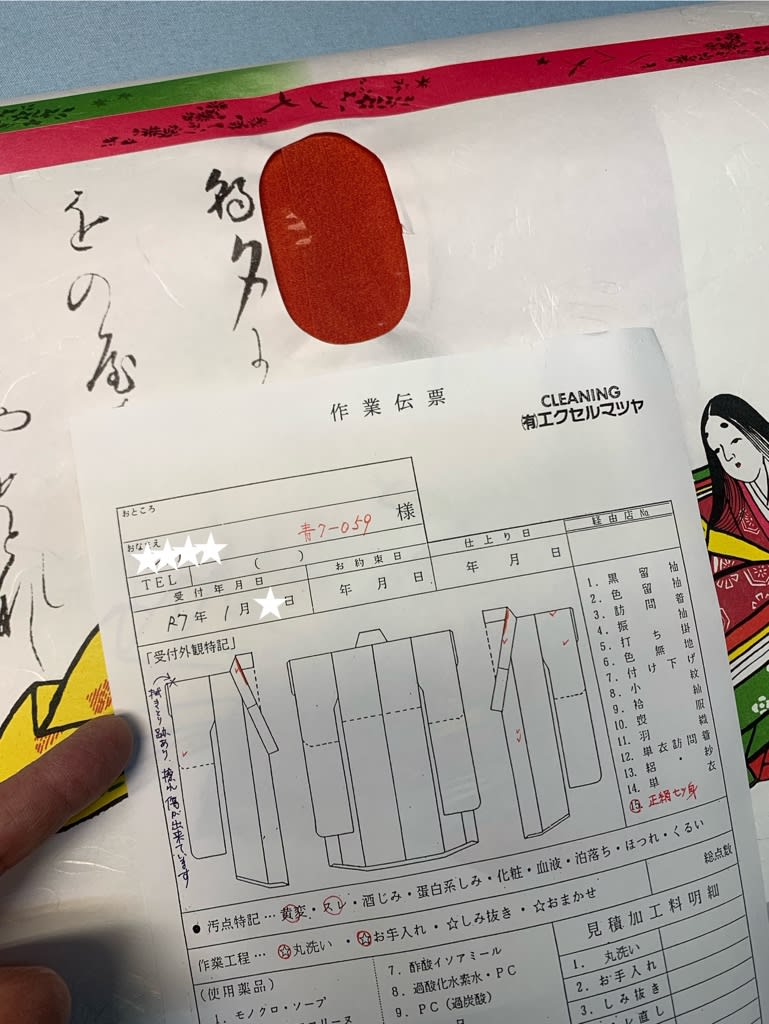 朝夕
をの屋
作業伝票
CLEANING
㈲エクセルマツヤ
おところ
おなまえ
青7-059 様
TEL ( )
受付年月日
お約束日
仕上り日
経由店№
R7年 1月 日
年 月 日
年 月 日
「受付外観特記」
拭きとり跡あり、擦れ傷が出来ています
1. 黒留袖
2. 色留袖
3. 訪問着
4. 振袖
5. 打ち掛
6. 色無地
7. 付け下げ
8. 小紋
9. 袷
10. 喪服
11. 羽織
12. 単衣訪問着
13. 絽・紗
14. 単衣
15. 正絹七ツ身
●汚点特記…黄変・スレ・酒じみ・蛋白系しみ・化粧・血液・泊落ち・ほつれ・くるい
作業工程…☆丸洗い・☆お手入れ・☆しみ抜き・☆おまかせ
総点数
(使用薬品)
1. モノクロ・ソープ
7. 酢酸イソアミール
8. 過酸化水素水・PC
9. PC(過炭酸)
見積加工料明細
1. 丸洗い
2. お手入れ
3. しみ抜き